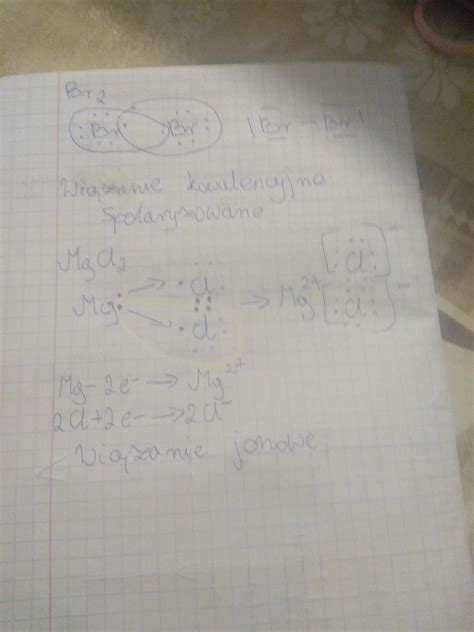 Br2
:Br· ·Br: |Br - Br|
Wiązanie kowalencyjne
spolaryzowane
MgCl2
Mg: → ·Cl: → Mg2+ [:Cl:]-
→ ·Cl: [:Cl:]-
Mg-2e- → Mg2+
2Cl+2e- → 2Cl-
Wiązanie jonowe